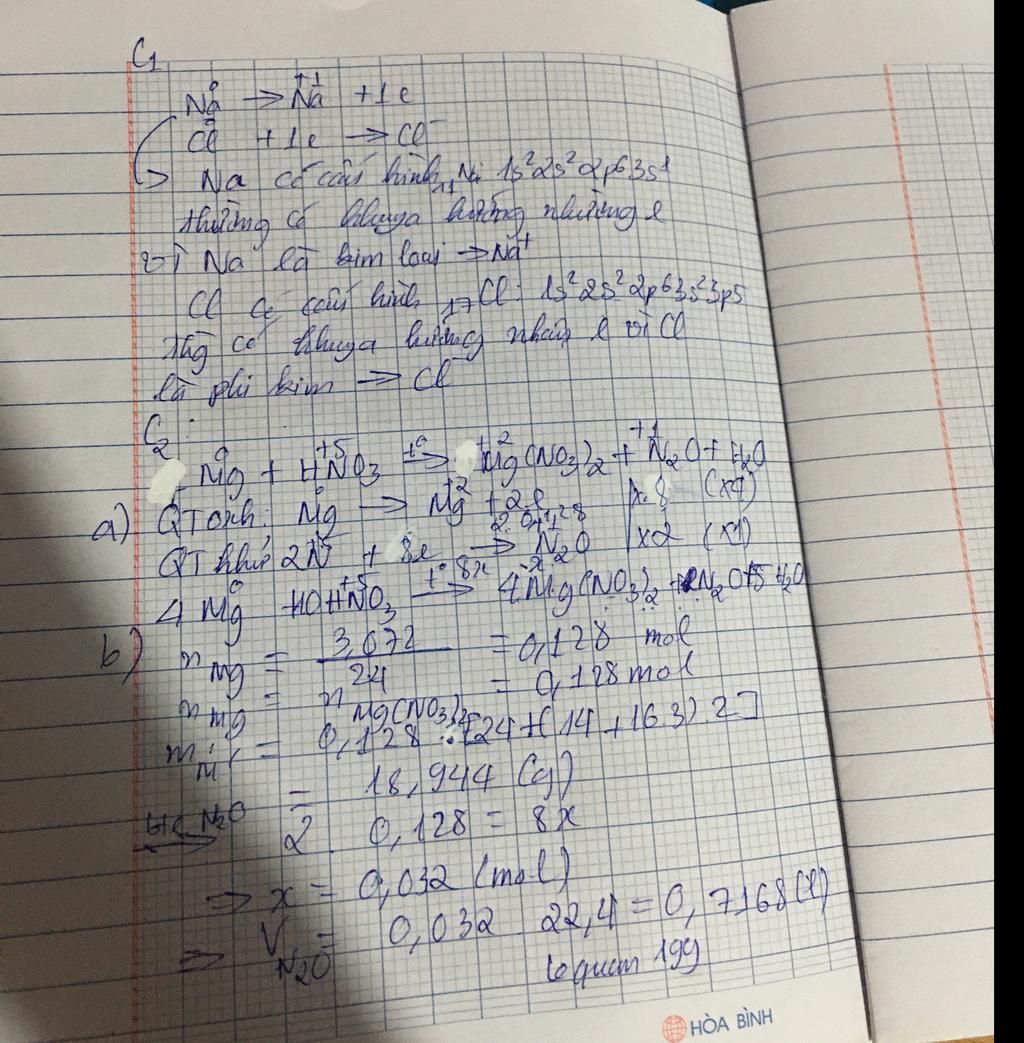 C1
Na⁰ → Na⁺¹ + 1e
Cl⁰ + 1e → Cl⁻
→ Na có cấu hình ₁₁Na: 1s² 2s² 2p⁶ 3s¹
thường có khuya hướng nhường e
vì Na là kim loại → Na⁺
Cl có cấu hình ₁₇Cl: 1s² 2s² 2p⁶ 3s² 3p5
thg có khuya hướng nhận e vì Cl
là phi kim → Cl⁻
C2:
Mg⁰ + HN⁺⁵O3 t⁰→ Mg⁺²(NO3)2 + N⁺¹2O + H2O
a) QT oxh: Mg⁰ → Mg⁺² + 2e | x 8 (x4)
2. 0,128
QT khử 2N⁺⁵ + 8e → N2O | x2 (x1)
8x x
4Mg⁰ + 10HN⁺⁵O3 t⁰→ 4Mg(NO3)2 + N2O + 5H2O
b) nMg = 3,072 / 24 = 0,128 mol
nMg = nMg(NO3)2 = 0,128 mol
m = 0,128 . [24 + (14 + 16.3).2]
= 18,944 (g)
N2O → 2. 0,128 = 8x
⇒ x = 0,032 (mol)
⇒ VN2O = 0,032 . 22,4 = 0,7168 (l)
lequan 199
HÒA BÌNH